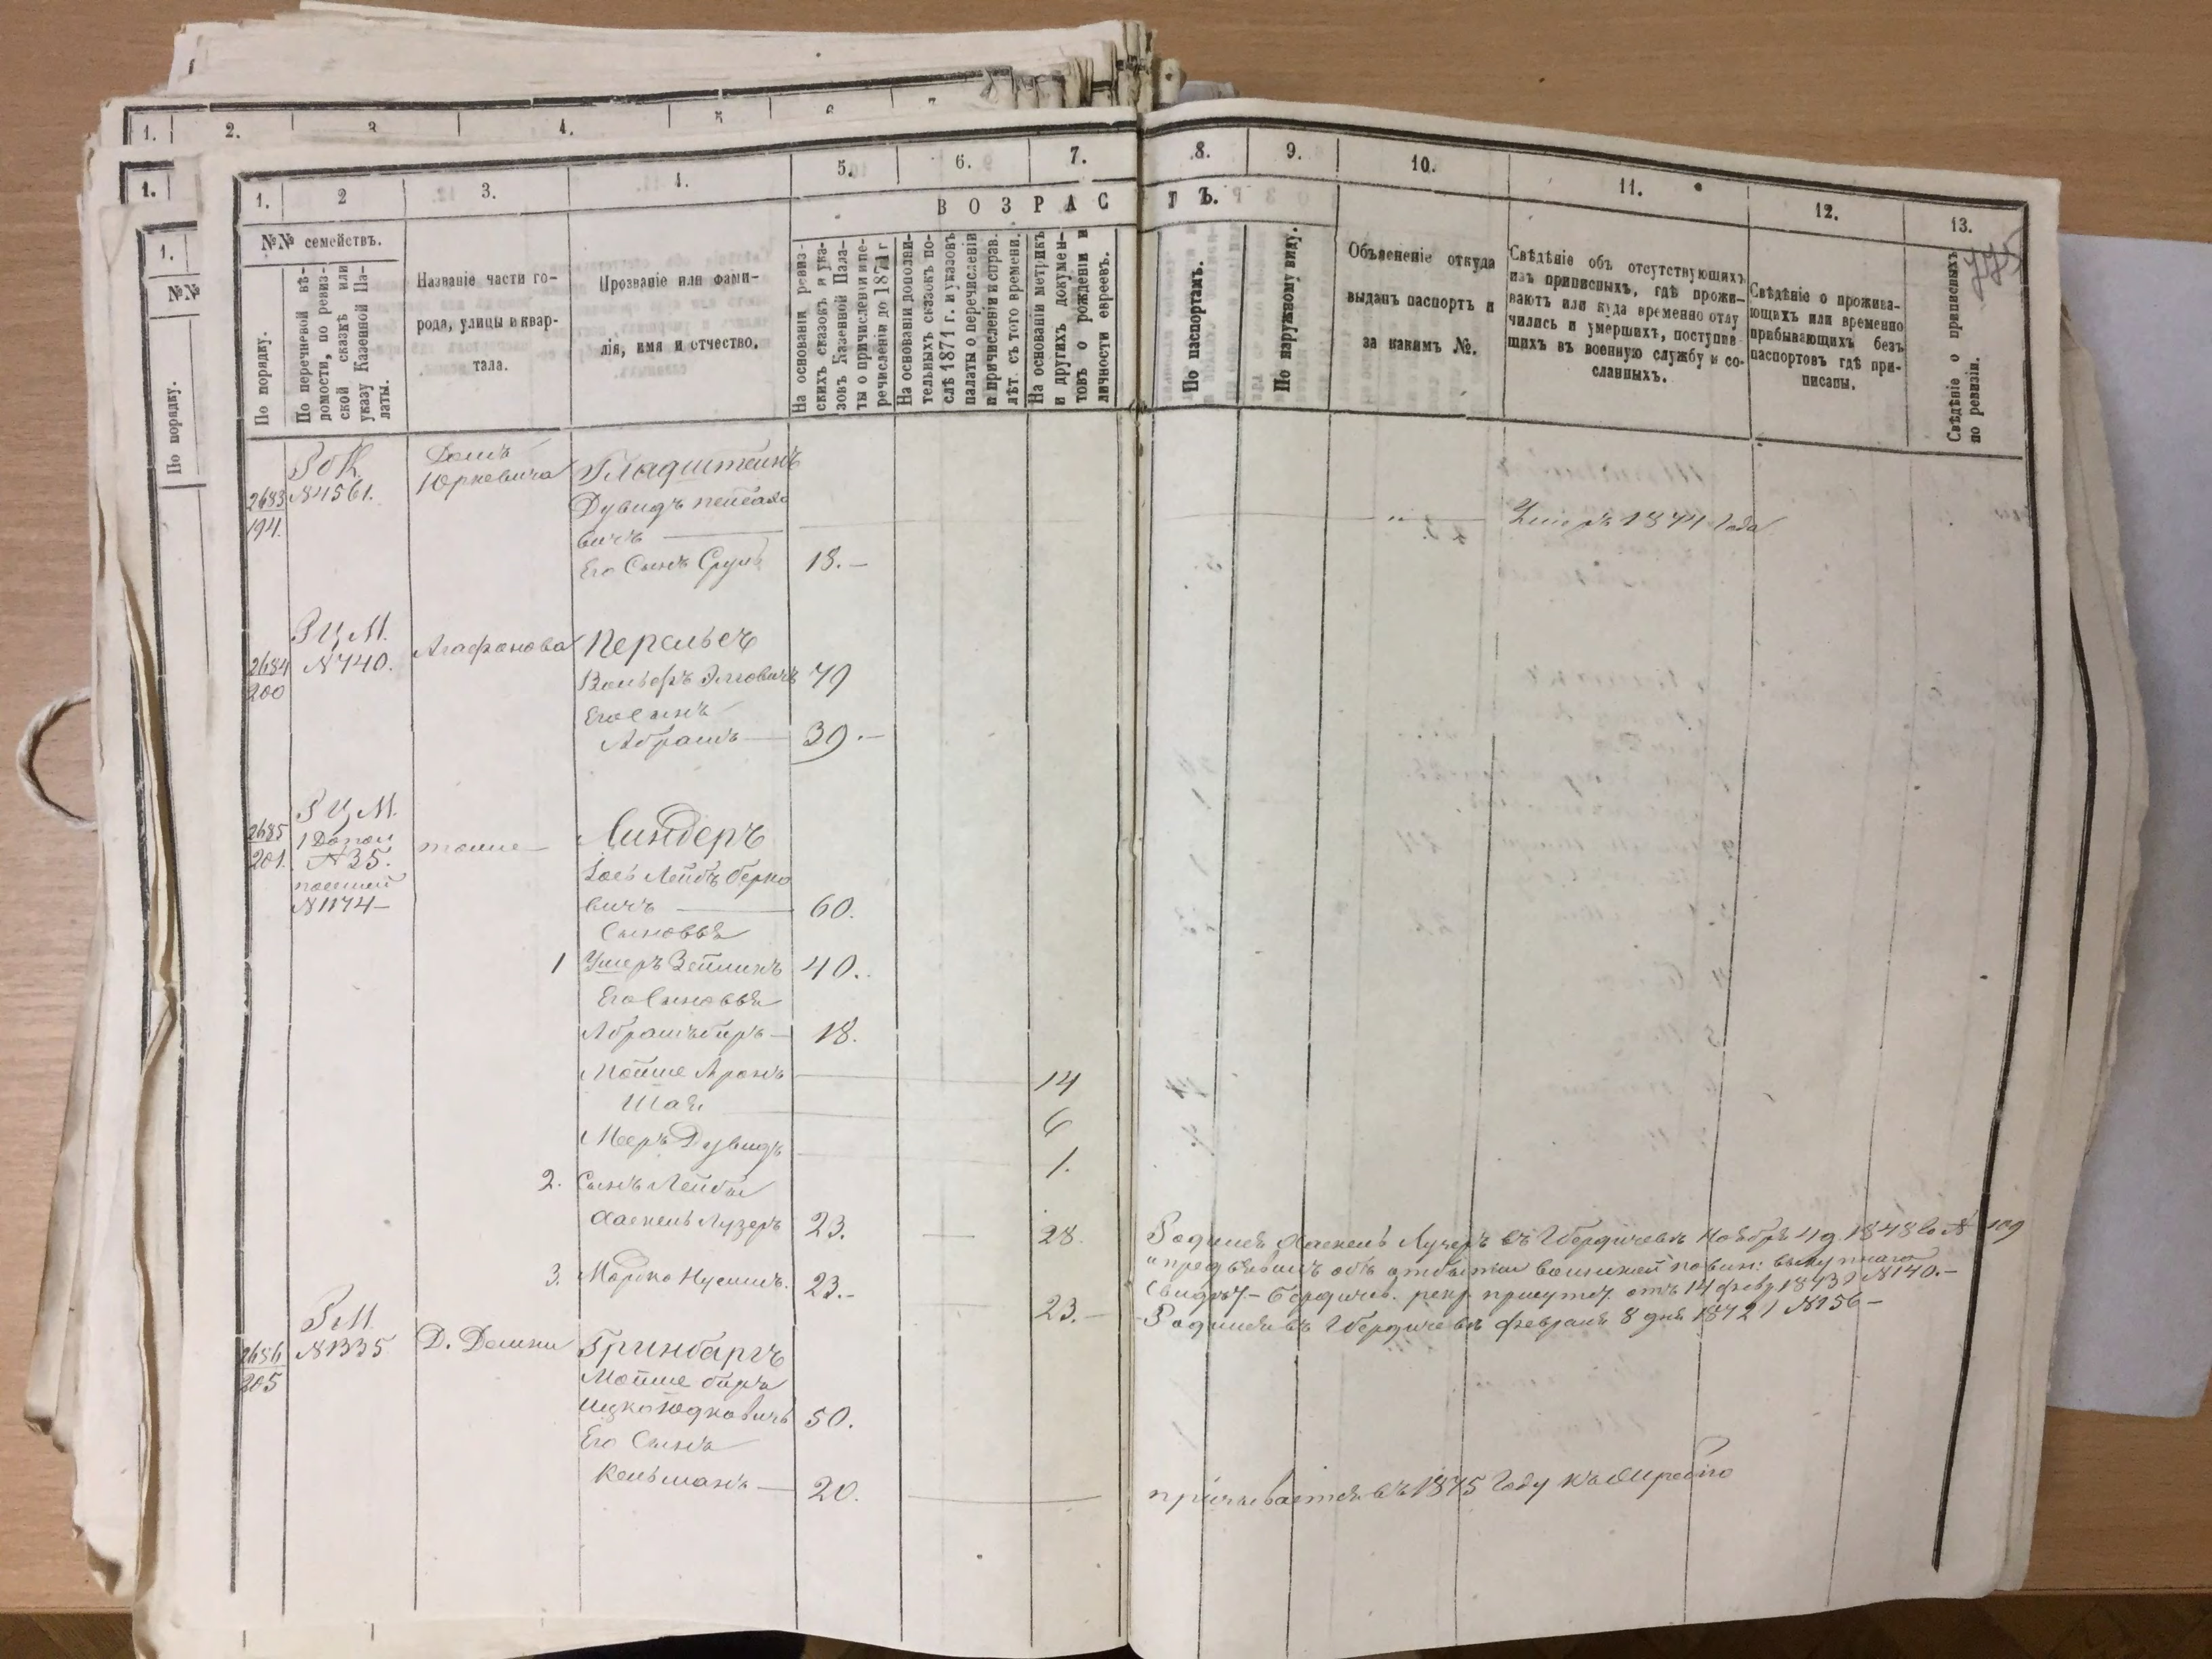 1.
2.
3
4.
5
6
7
1.
1.
№№
По порядку.
1.
2
3.
4.
5.
6.
7.
8.
9.
10.
11.
12.
13.
775
ВОЗРАС
ТЪ.
№№ семействъ.
По порядку.
По перечневой вѣ-
домости, по ревиз-
ской сказкѣ или
указу Казенной Па-
латы.
Названіе части го-
рода, улицы и квар-
тала.
Прозваніе или фами-
лія, имя и отчество.
На основаніи ревиз-
скихъ сказокъ и ука-
зовъ Казенной Пала-
ты о причисленіи и пе-
речисленіи до 1871 г
На основаніи дополни-
тельныхъ сказокъ по-
слѣ 1871 г. и указовъ
палаты о перечисленіи
и причисленіи и справ.
лѣт. съ того времени.
На основаніи метрикъ
и другихъ докумен-
товъ о рожденіи и
личности евреевъ.
По паспортамъ.
По наружному виду.
Объясненіе откуда
выданъ паспортъ и
за какимъ №.
Свѣдѣніе объ отсутствующихъ
изъ приписныхъ, гдѣ прожи-
ваютъ или куда временно отлу
чились и умершихъ, поступив-
шихъ въ военную службу и со-
сланныхъ.
Свѣдѣніе о прожива-
ющихъ или временно
прибывающихъ безъ
паспортовъ гдѣ при-
писаны.
Свѣдѣніе о приписныхъ
по ревизіи.
2683
194.
Р о К.
№ 1561.
Домъ
Юркевича
Гладштейнъ
Дувидъ Пейсахо
вичъ
Умеръ 1874 Года
Его Сынъ Сруль 18.–
2684
200
Р Ц М.
№ 740.
Агафонова
Персьесъ
Вольфъ 79
Его Сынъ
Абрамъ 39.–
2685
201.
Р Ц М.
1 Допол
№ 35.
№ 1174–
тоже
Линдеръ
Іось Лейбъ Берко
вичъ 60.
Сыновья
1 Ушеръ Зейликъ 40.
Его Сыновья
Абрамъ Беръ 18.
Мойше Аронъ 14
Шая 6
Мееръ Дувидъ 1.
2. Сынъ Лейбы
Хаскель Лузеръ 23. 28.
Родился Хаскель Лузеръ въ Г Бердичевѣ Ноября 4 д. 1848 во № 109
предъявилъ объ отбытіи воинской повин:
Свидѣт– Бердичев. рекр. присутст. отъ 14 февр. 1873 г № 140.–
3. Мошко Нусимъ. 23.– 23.–
Родился въ Г Бердичевѣ февраля 8 дня № 156–
2686
205
Р М.
№ 1335
Д. Домни
Гринбаргъ
Мойше беръ
Ицко Юдковичъ 50.
Его Сынъ
Кельманъ 20.
призывается въ 1875 Году къ жребію